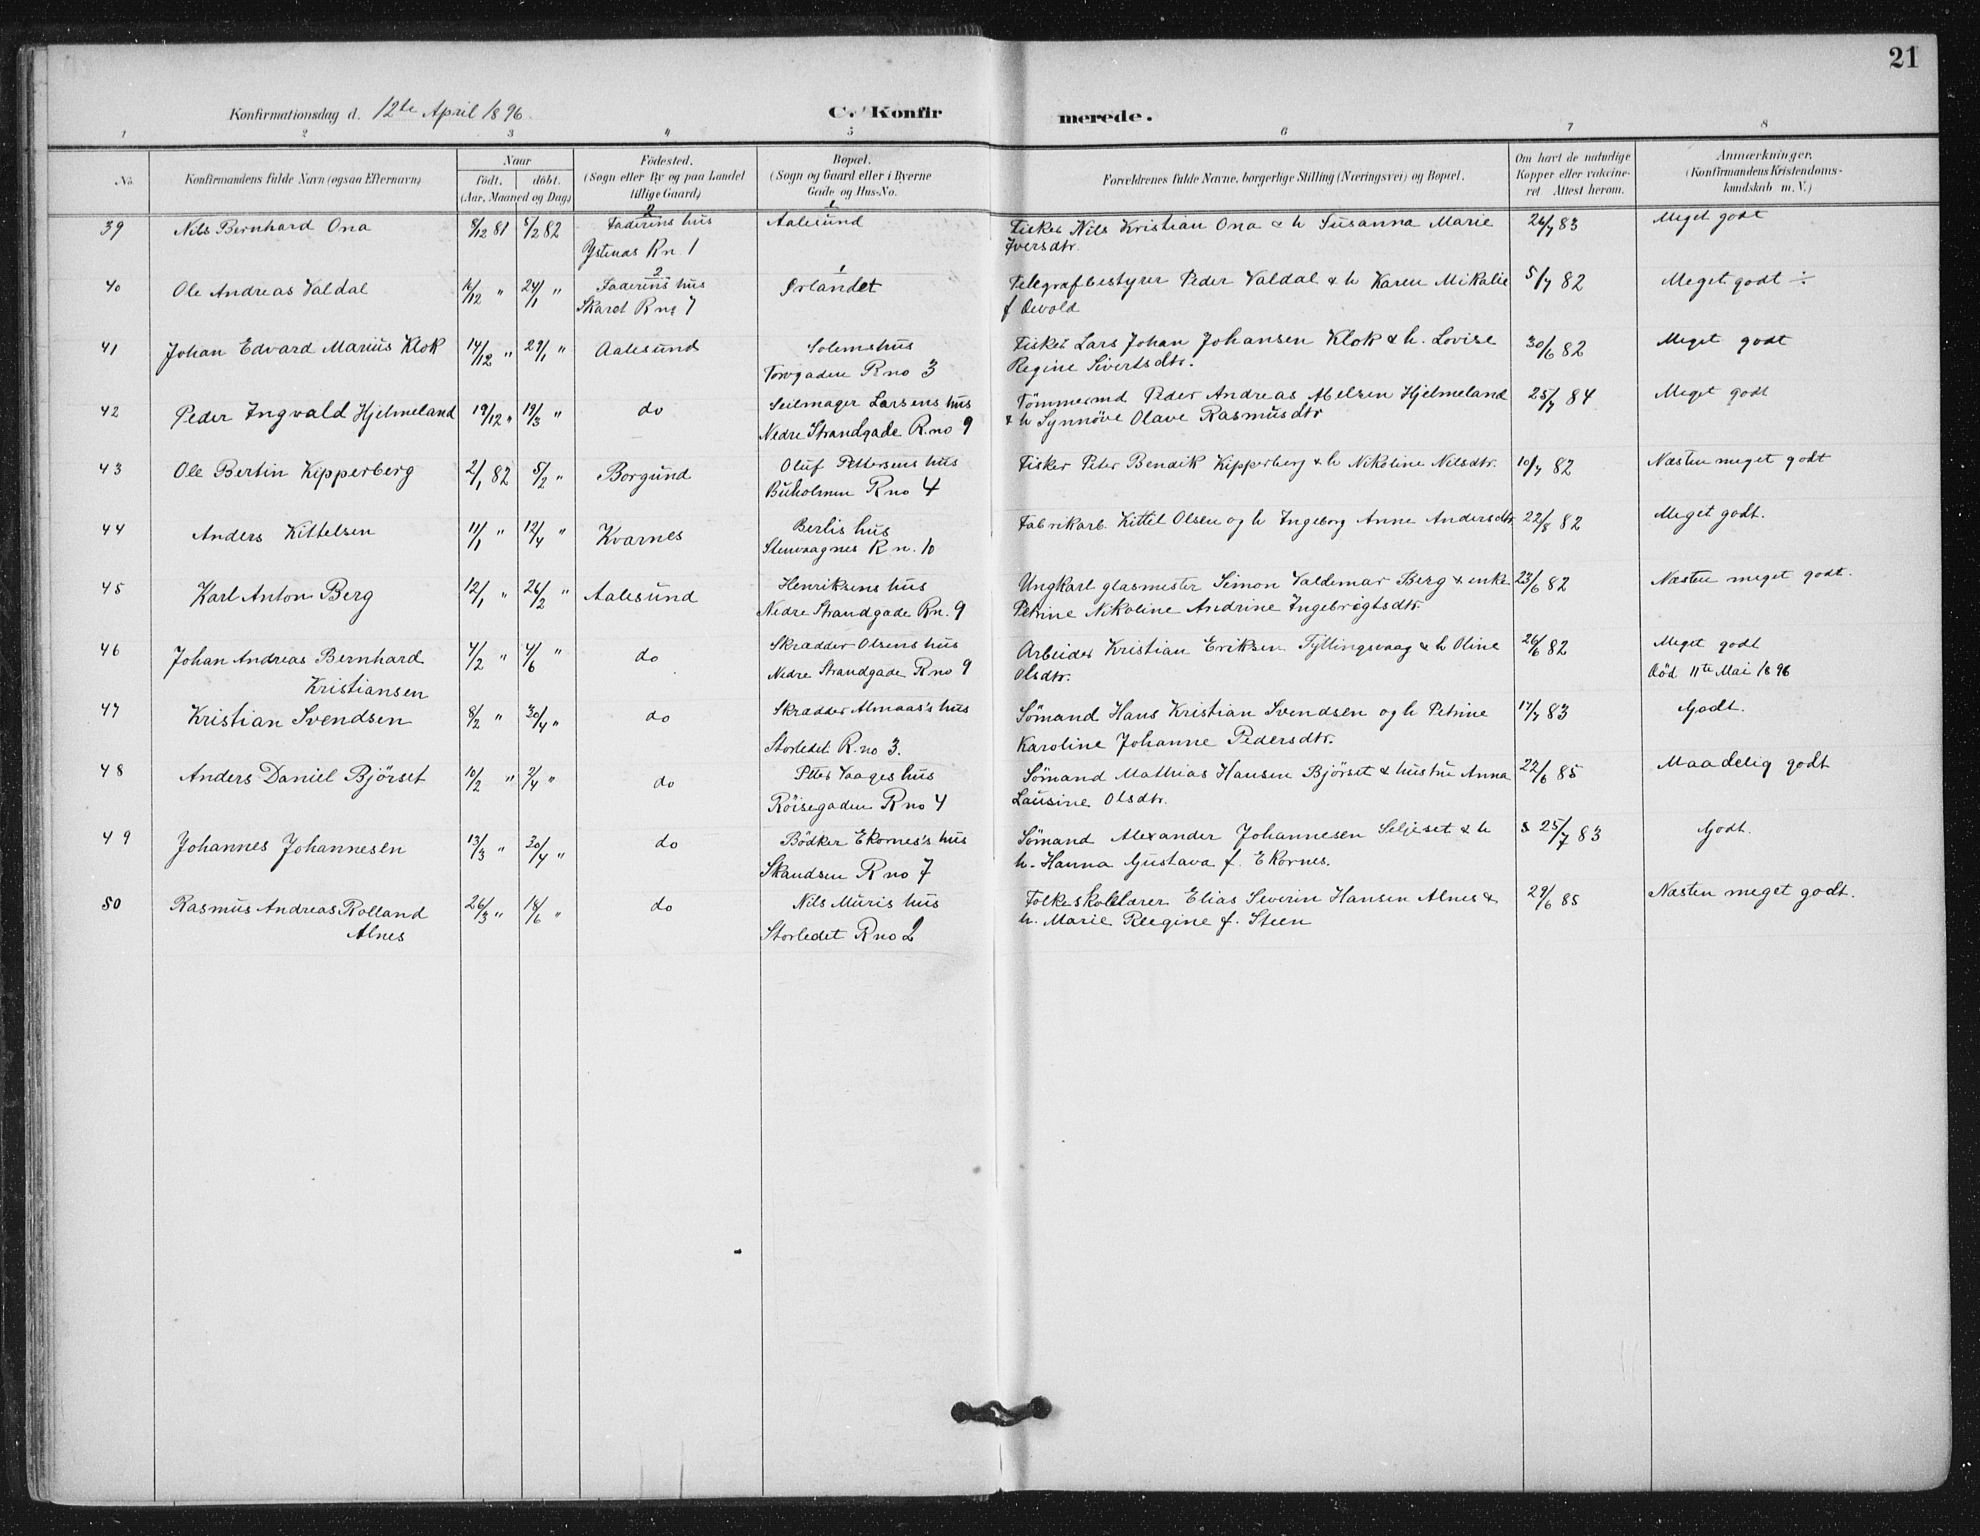 21
Konfirmationsdag d. 12te April 1896. C. Konfirmerede.
1 2 3 4 5 6 7 8
No. Konfirmandens fulde Navn (ogsaa Efternavn) Naar födt. döbt. (Aar, Maaned og Dag) Födested. (Sogn eller By og paa Landet tillige Gaard) Bopæl. (Sogn og Gaard eller i Byerne Gade og Hus-No. Forældrenes fulde Navne, borgerlige Stilling (Næringsvei) og Bopæl. Om havt de naturlige Kopper eller vakcineret Attest herom. Anmærkninger. (Konfirmandens Kristendomskundskab m. V.)
39 Nils Bernhard Ona 8/12 81 5/2 82 2 Faderens hus 1 Aalesund Fisker Nils Kristian Ona & h Susanna Marie 26/7 83 Meget godt
Ystenes R n. 1 Iversdtr.
40 Ole Andreas Valdal 16/12 " 24/1 " 2 Faderens hus 1 Ørlandet Telegrafbestyrer Peder Valdal & h Karen Mikalie 5/7 82 Meget godt ÷
Skarot R no 7 f Devold
41 Johan Edvard Marius Klok 14/12 " 29/1 " Aalesund Solemshus Fisker Lars Johan Johansen Klok & h. Lovise 30/6 82 Meget godt
Torvgaden R no 3 Regine Sivertsdtr.
42 Peder Ingvald Hjelmeland 19/12 " 19/3 " do Seilmager Larsens hus Tømmermd Peder Andreas Abelsen Hjelmeland 25/7 84 Meget godt
Nedre Strandgade R. no 9 & h Synnöve Olave Rasmusdtr
43 Ole Bertin Kipperberg 2/1 82 5/2 " Borgund Oluf Pettersens hus Fisker Peter Bendik Kipperberg & h Nikoline Nilsdtr. 10/7 82 Næsten meget godt
Buholmen R no 4
44 Anders Kittelsen 11/1 " 12/4 " Kvarnes Berlis hus Fabrikarb. Kittil Olsen og h Ingeborg Anne Andersdtr 22/8 82 Meget godt.
Stenvaagnes R n. 10
45 Karl Anton Berg 12/1 " 26/2 " Aalesund Henriksens hus Ungkarl glasmester Simon Valdemar Berg & enke 23/6 82 Næsten meget godt.
Nedre Strandgade R n. 9 Petrine Nikoline Andrine Ingebrigtsdtr.
46 Johan Andreas Bernhard 4/2 " 4/6 " do Skrædder Olsens hus Arbeider Kristian Eriksen Tyllingsvaag & h Oline 26/6 82 Meget godt
Kristiansen Nedre Strandgade R no 9 Olsdtr. Död 11te Mai 1896
47 Kristian Svendsen 8/2 " 30/4 " do Skrædder Almaas's hus Sömand Hans Kristian Svendsen og h Petrine 17/7 83 Godt.
Storledet R. no 3. Karoline Johanne Pedersdtr.
48 Anders Daniel Björset 10/2 " 2/4 " do Peter Vaages hus Sömand Mathias Hansen Björset & hustru Anna 22/6 85 Maadelig godt
Röisegaden R no 4 Lausine Olsdtr.
49 Johannes Johannesen 13/3 " 30/4 " do Bödker Ekornes's hus Sömand Alexander Johannesen Seljeset & h s 25/7 83 Godt.
Skandsen R no 7 h. Hanna Gustava f. Ekornes.
50 Rasmus Andreas Rolland 26/3 " 18/6 " do Nils Muris hus Folkeskolelærer Elias Severin Hansen Alnes & 29/6 85 Næsten meget godt.
Alnes Storledet R no 2 h. Marie Reegine f. Steen